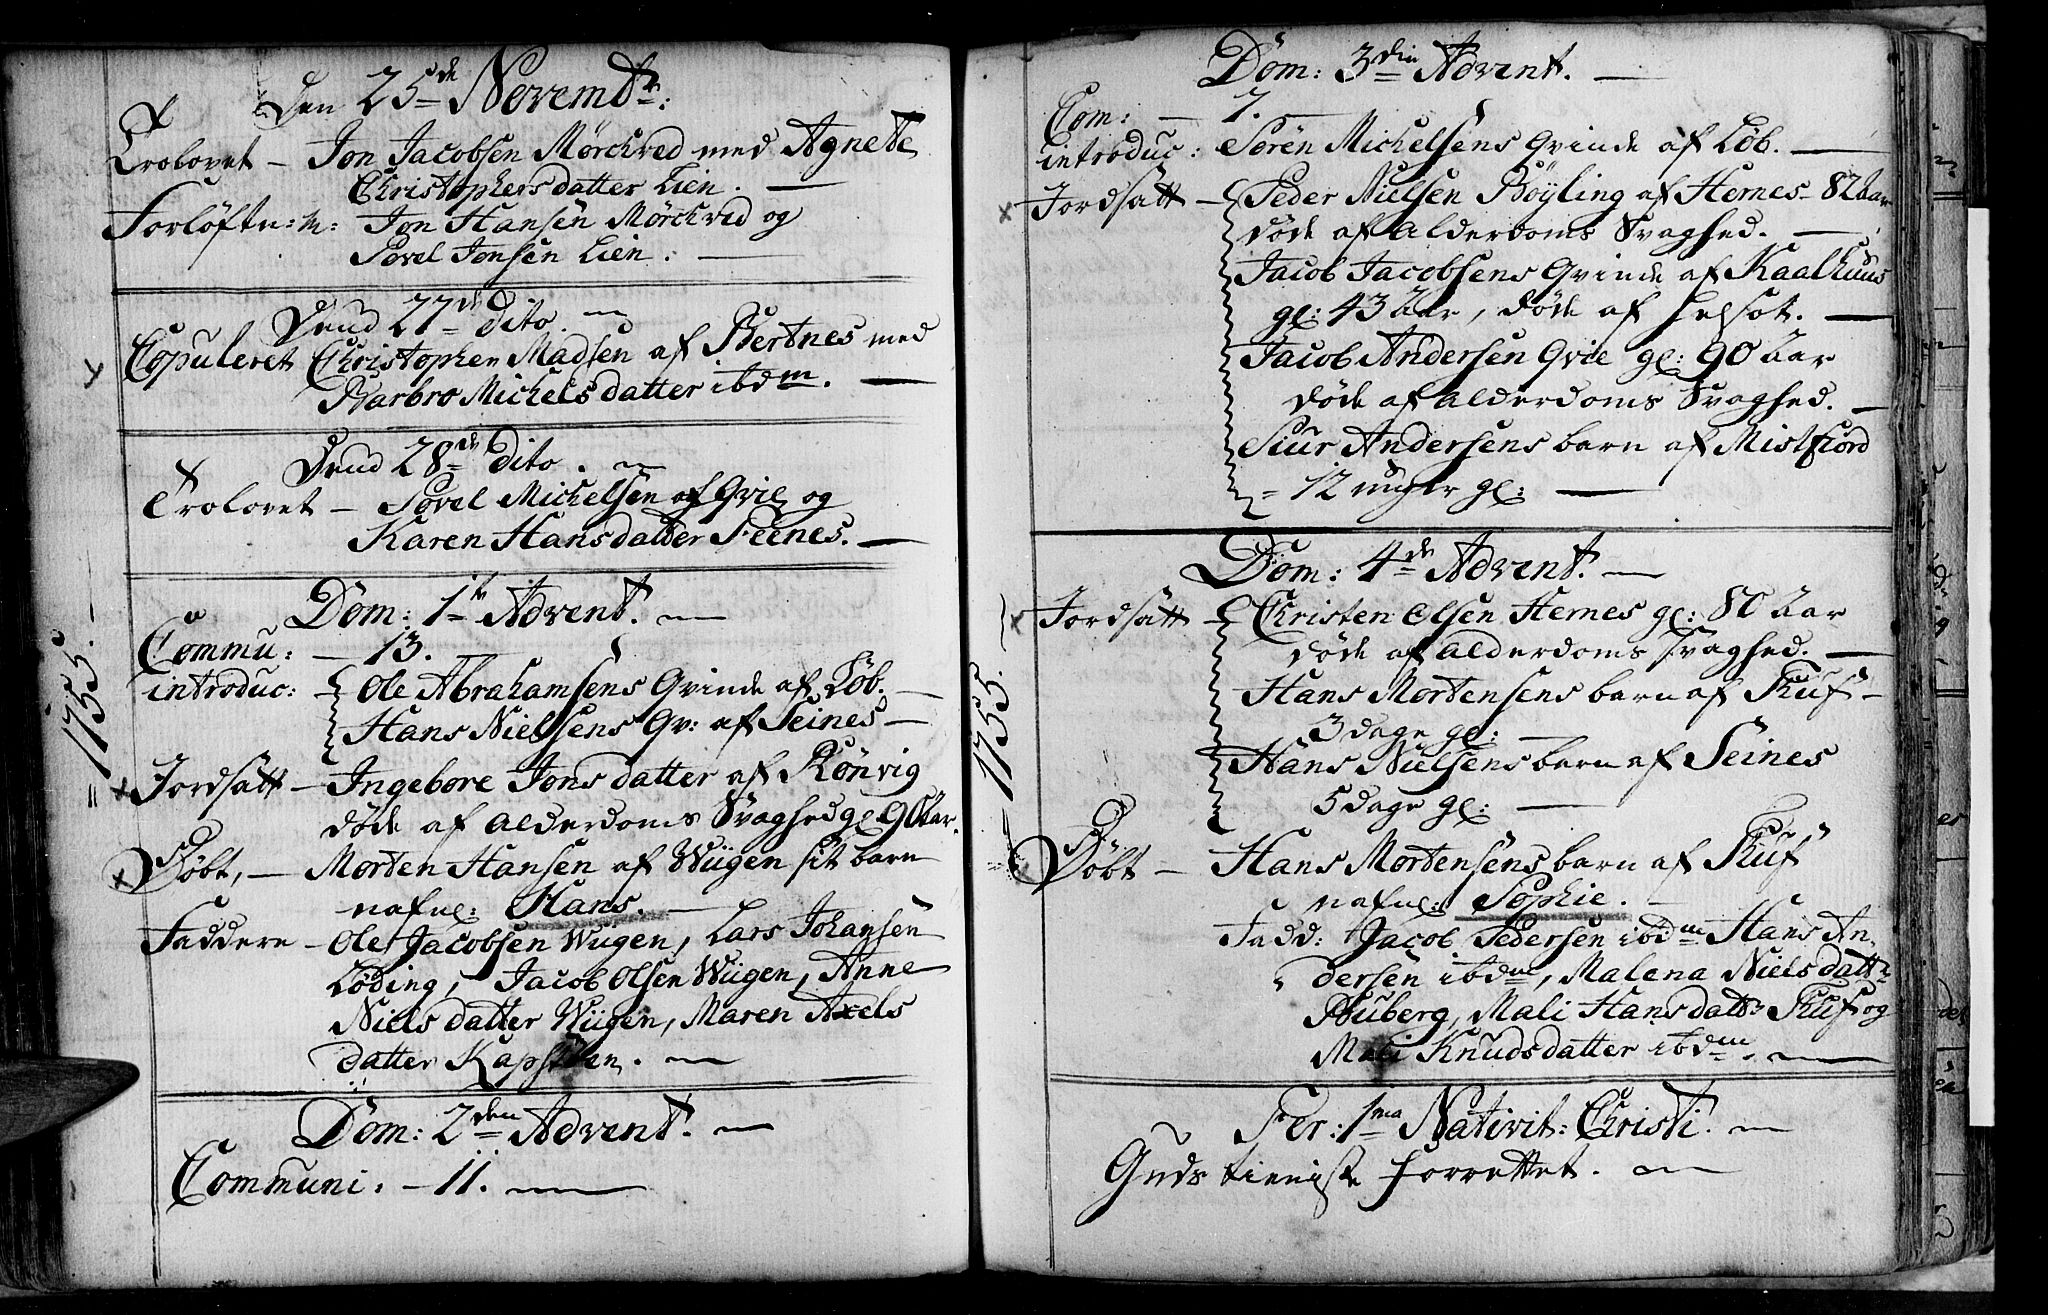 Den 25de Novembr:
Trolovet – Jon Jacobsen Mörchved med Agnete
Christophersdatter Lien. —
Forløftn: m: Jon Hansen Mörchved og
Povel Jonsen Lien. —
Dend 27de Dito. —
Copuleret Christophen Madsen af Bertnes med
Barbro Michelsdatter ibdm. —
Dend 28de Dito. —
Trolovet – Povel Michelsen af Qvie og
Karen Hansdatter Seenes. —
Dom: 1te Advent. —
Commu: – 13.
introduc: – Ole Abrahamsens Qvinde af Løb. —
Hans Nielsens Qv: af Seines —
Jordsatt – Ingebore Jonsdatter af Rönvig
døde af Alderdoms Svaghed gl. 90 Aar.
Døbt, – Morten Hansen af Wiigen sit barn
nafnl: Hans. —
Faddere – Ole Jacobsen Wiigen, Lars Johansen
Löding, Jacob Olsen Wiigen, Anne
Nielsdatter Wiigen, Maren Axels
datter Kapsteen. —
Dom: 2den Advent. —
Communi: – 11. —
= 1755. —
Dom: 3die Advent. —
Com: – 7. —
introduc: Sören Michelsens Qvinde af Løb. —
Jordsatt – Peder Nielsen Böyling af Hernes – 82 Aar
døde af Alderdoms Svaghed. —
Jacob Jacobsens Qvinde af Kaalhuus
gl: 43 Aar, døde af Helsot. —
Jacob Andersen Qvie gl: 90 Aar
døde af Alderdoms Svaghed. —
Siur Andersens barn af Mistfiord
= 12 uuger gl: —
Dom: 4de Advent. —
Jordsatt – Christen Olsen Hernes gl: 80 Aar
døde af Alderdoms Svaghed. —
Hans Mortensens barn af Skuf –
3 dage gl: —
Hans Nielsens barn af Seines
5 dage gl: —
Döbt – Hans Mortensens barn af Skuf
nafnl: Sophie. —
Fadd: Jacob Pedersen ibdm Hans An-
dersen ibdm, Malena Nielsdattr
Mali Hansdattr Skuf og
Mali Knudsdatter ibdm. —
Fer: 1ma Nativit: Christi. —
Guds tieniste forrettet. —
= 1755. —